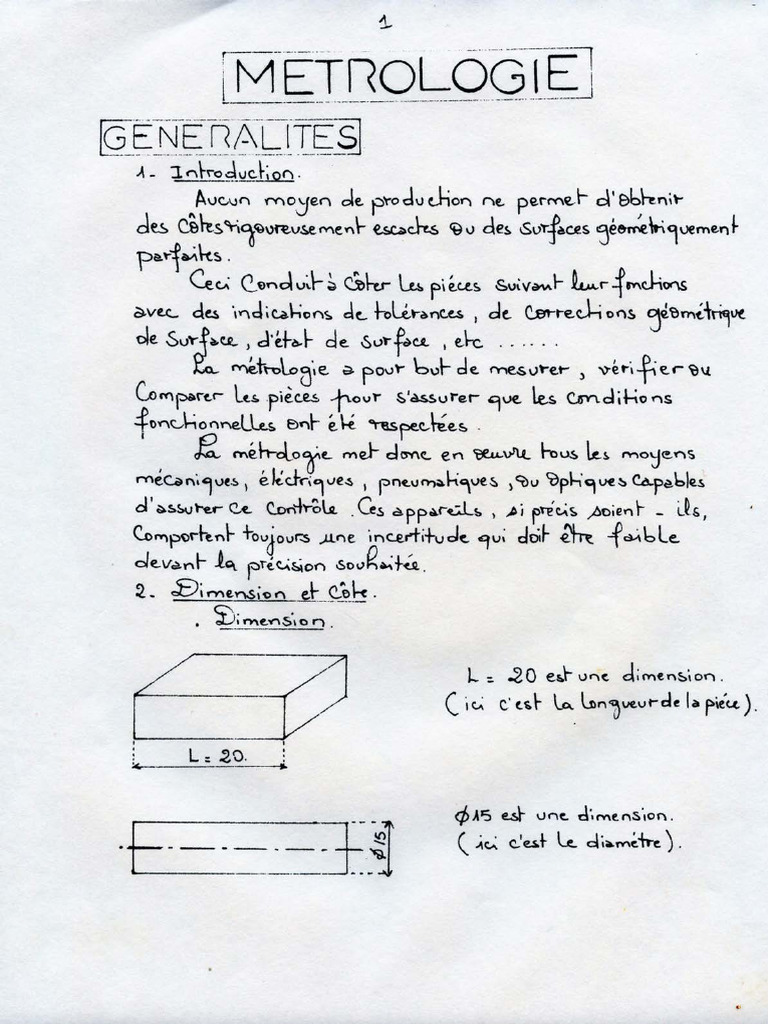 1
METROLOGIE
GENERALITES
1- Introduction.
Aucun moyen de production ne permet d'obtenir
des côtes rigoureusement escactes ou des surfaces géométriquement
parfaites.
Ceci conduit à côter les piéces suivant leur fonctions
avec des indications de tolérances, de corrections géométrique
de surface, d'état de surface, etc ......
La métrologie a pour but de mesurer, vérifier ou
Comparer les pièces pour s'assurer que les conditions
fonctionnelles ont été respectées.
La métrologie met donc en œuvre tous les moyens
mécaniques, éléctriques, pneumatiques, ou optiques capables
d'assurer ce contrôle. Ces appareils, si précis soient-ils,
Comportent toujours une incertitude qui doit être faible
devant la précision souhaitée.
2- Dimension et Côte.
. Dimension.
L = 20 est une dimension.
(ici c'est la longueur de la piéce).
L = 20.
Φ15 est une dimension.
(ici c'est le diamétre).
Φ15